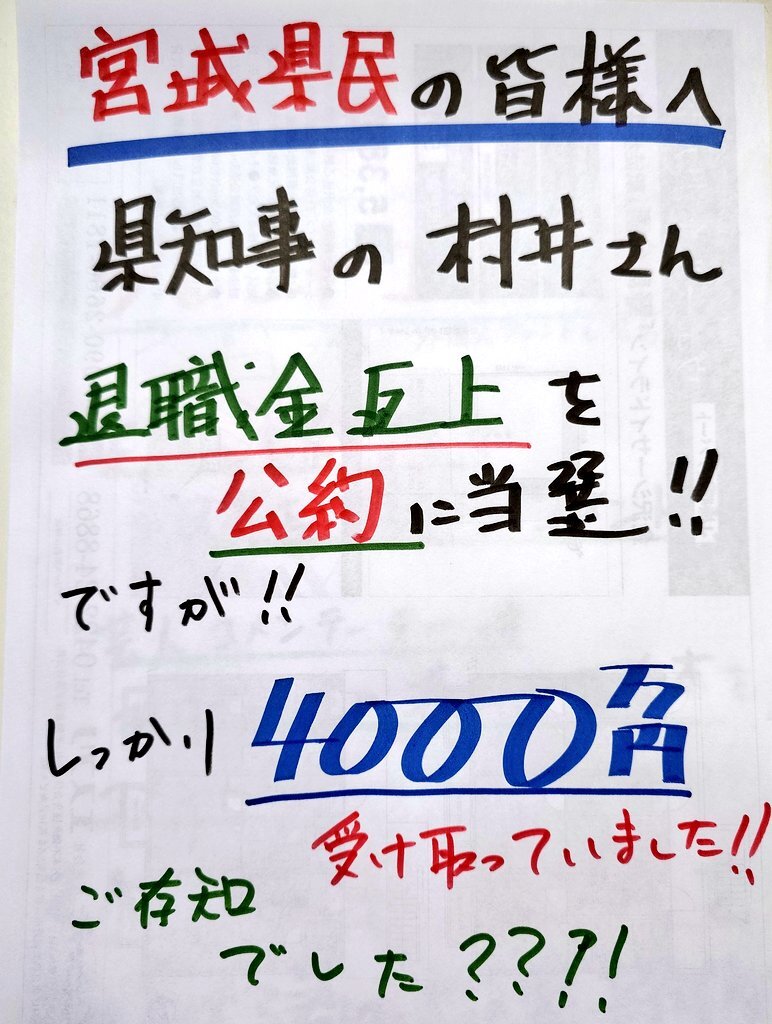 宮城県民の皆様へ
県知事の 村井さん
退職金返上を
公約に当選!!
ですが!!
しっかり4000万円
受け取っていました!!
ご存知
でした???!